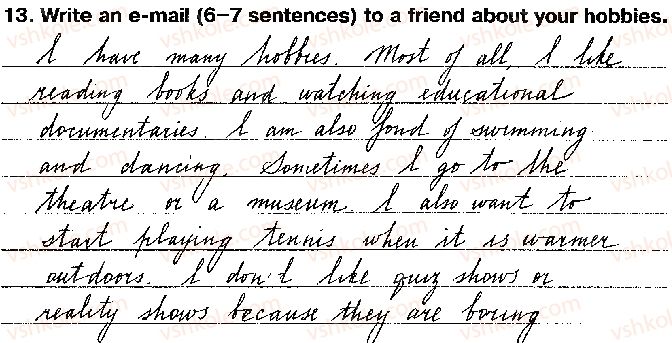 13. Write an e-mail (6–7 sentences) to a friend about your hobbies.
I have many hobbies. Most of all, I like
reading books and watching educational
documentaries. I am also fond of swimming
and dancing. Sometimes I go to the
theatre or a museum. I also want to
start playing tennis when it is warmer
outdoors. I don't like quiz shows or
reality shows because they are boring